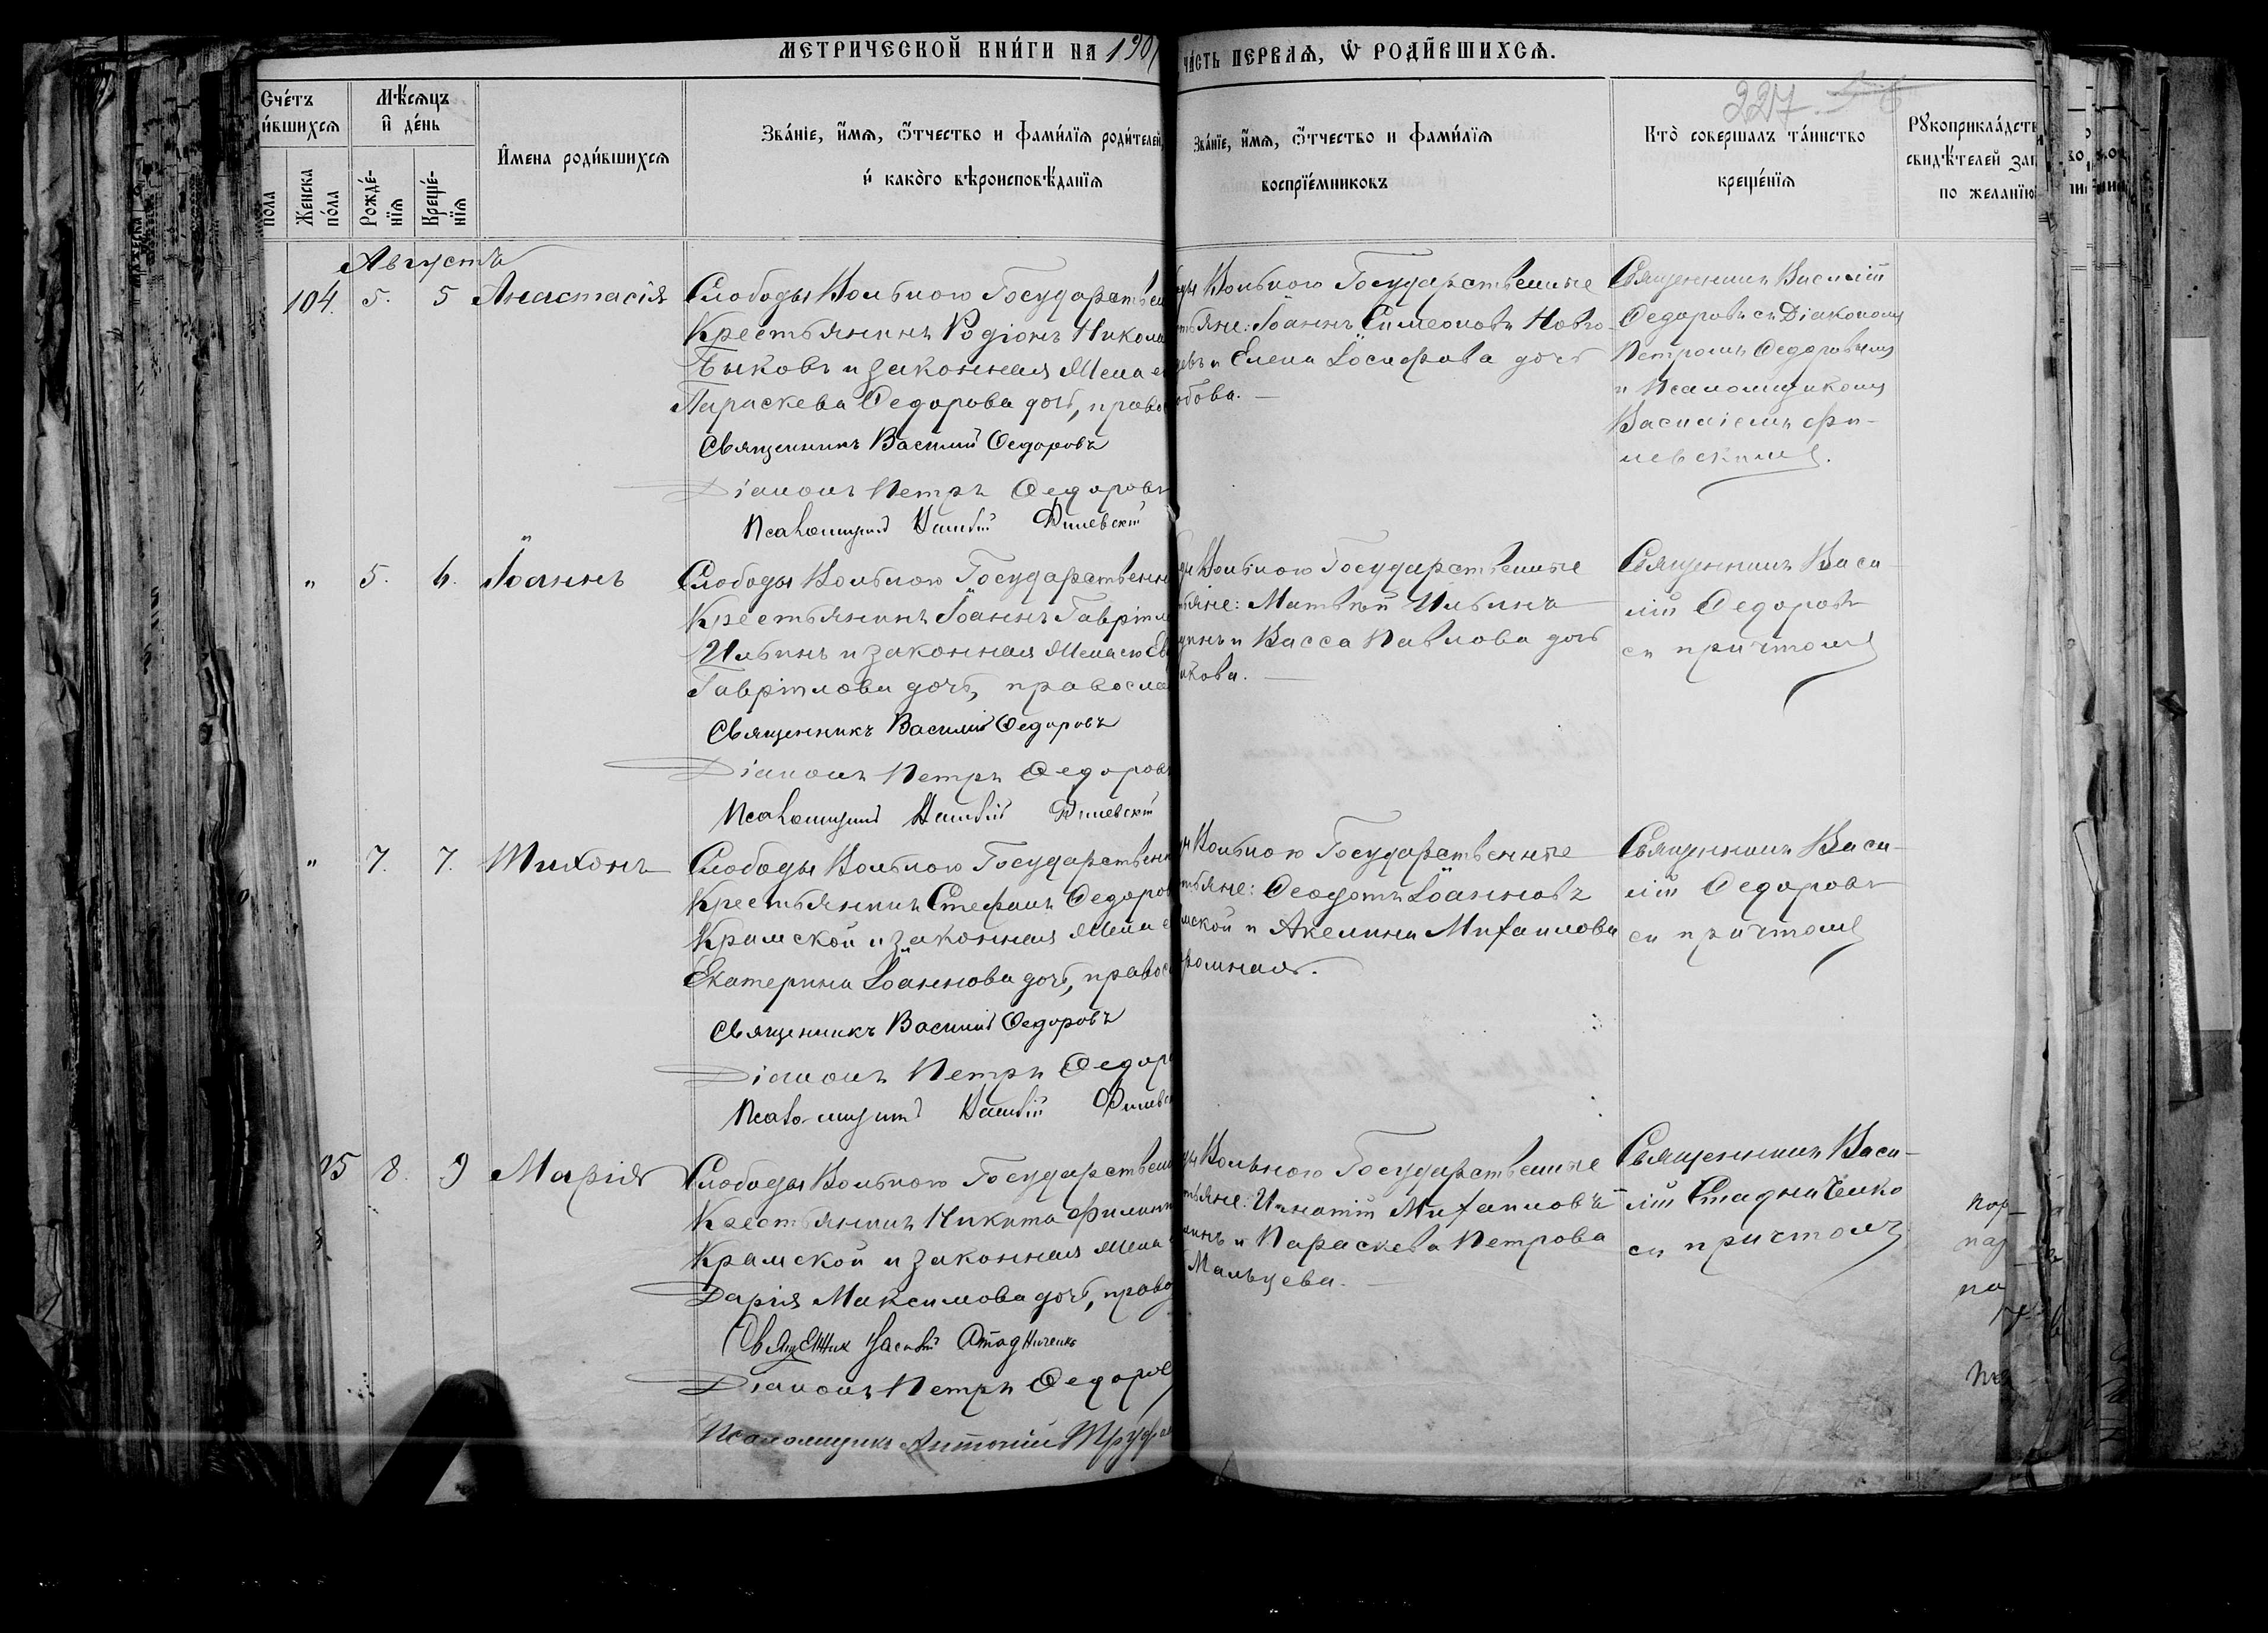 МЕТРИЧЕСКОЙ КНИ́ГИ НА 190
ЧА́СТЬ ПЕРВАѦ, Ѡ҆ РОДИ́ВШИХСѦ.
227
Сче́тъ
и́вшихсѧ
Мѣ́сѧцъ
и҆ де́нь
пола
Женска
по́ла
Рожде́-
нїѧ
Креще́-
нїѧ
И҆мена роди́вшихсѧ
Зва́нїе, и҆́мѧ, ѻ҆́тчество и фами́лїѧ роди́телей,
и҆ како́го вѣроисповѣ́данїѧ
Зва́нїе, и҆́мѧ, ѻ҆́тчество и фами́лїѧ
воспрїе́мниковъ
Кто̀ соверша́лъ та́инство
креще́нїѧ
Рꙋкоприкла́дст
свидѣ́телей зап
по желанїю
Августъ
104. 5. 5 Анастасія
Слободы Вольною Государствен
Крестьянинъ Родіонъ Никола
Быковъ и законная жена е
Параскева Федорова дочь, право
Священникъ Василий Федоровъ
Діаконъ Петръ Федоровъ
Псаломщикъ Василій Филевскій
ды Вольною Государственные
тьяне: Іоаннъ Симеоновъ Новго-
цевъ и Елена Іосифова дочь
бова.
Священникъ Василій
Федоровъ съ Діакономъ
Петромъ Федоровымъ
и Псаломщикомъ
Василіемъ Фи-
левскимъ.
" 5. 6. Іоаннъ
Слободы Вольною Государственн
Крестьянинъ Іоаннъ Гавріил
Ильинъ и законная жена его Ев
Гавріилова дочь, правосла
Священникъ Василий Федоровъ
Діаконъ Петръ Федоровъ
Псаломщикъ Василій Филевскій
ды Вольною Государственные
тьяне: Матвѣй Ильинъ
инъ и Васса Павлова дочь
икова.
Священникъ Васи-
лій Федоровъ
съ причтомъ
" 7. 7. Тихонъ
Слободы Вольною Государственн
Крестьянинъ Стефанъ Федоров
Крамской и законная жена е
Екатерина Іоаннова дочь, правос
Священникъ Василий Федоровъ
Діаконъ Петръ Федор
Псаломщикъ Василій Филевск
ды Вольною Государственные
тьяне: Феодотъ Іоанновъ
мской и Акелина Михаилова
Священникъ Васи-
лій Федоровъ
съ причтомъ
05 8. 9 Марія
Слободы Вольною Государствен
Крестьянинъ Никита Филипп
Крамской и законная жена е
Дарія Максимова дочь, право
Священник Василій Стадниченко
Діаконъ Петръ Федоров
Псаломщикъ Антоній Труфа
ды Вольною Государственные
тьяне: Игнатій Михаиловъ
инъ и Параскева Петрова
Мальцева.
Священникъ Васи-
лій Стадниченко
съ причтомъ